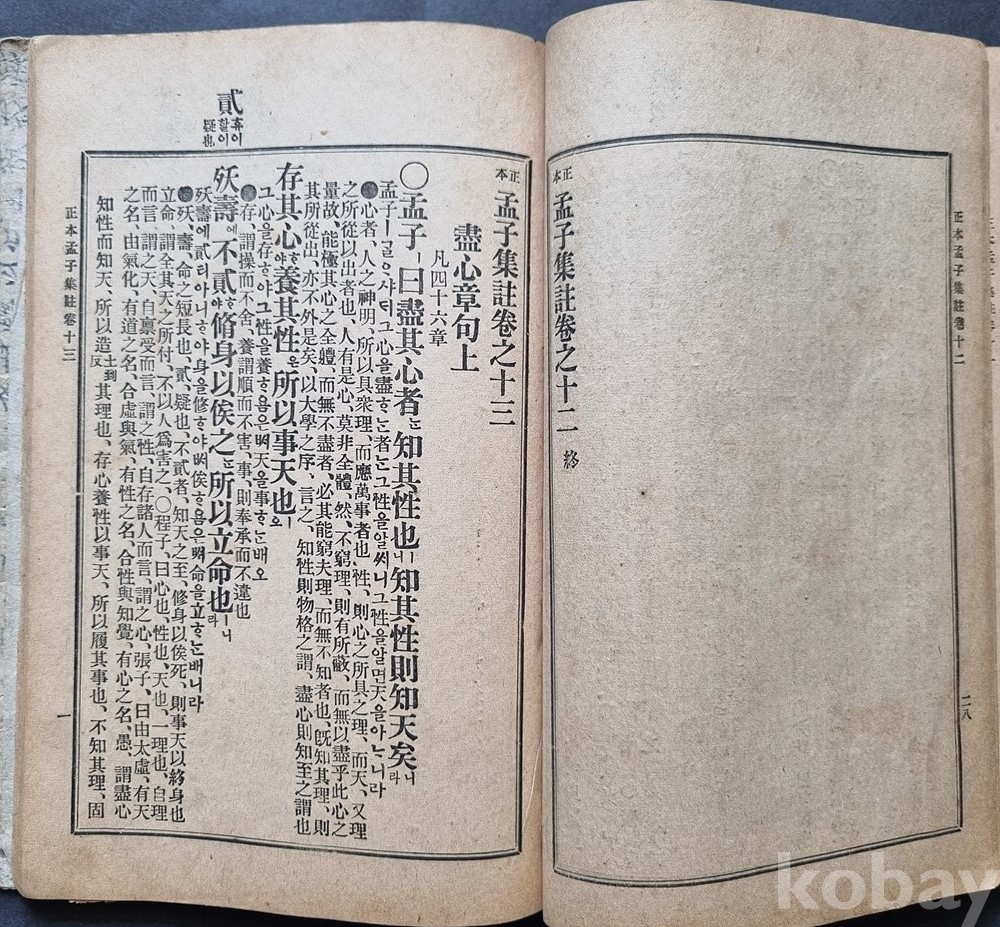 正本 孟子集註卷之十二 終
正本孟子集註卷十二
二八
正本 孟子集註卷之十三
盡心章句上
凡四十六章
○孟子ㅣ曰盡其心者ᄂᆞᆫ知其性也ㅣ니知其性則知天矣니라
孟子ㅣᄀᆞᆯᄋᆞ샤ᄃᆡ그心을盡ᄒᆞᄂᆞᆫ者ᄂᆞᆫ그性을알ᄶᅵ니그性을알면天을아ᄂᆞ니라
心者、人之神明、所以具衆理、而應萬事者也、性、則心之所具之理、而天、又理
之所從以出者也、人有是心、莫非全體、然、不窮理、則有所蔽、而無以盡乎此心之
量故、能極其心之全軆、而無不盡者、必其能窮夫理、而無不知者也、旣知其理、則
其所從出、亦不外是矣、以大學之序、言之、知性則物格之謂、盡心則知至之謂也
存其心ᄒᆞ야養其性은所以事天也ㅣ오
그心을存ᄒᆞ야그性을養ᄒᆞ욤은ᄡᅥ天을事ᄒᆞᄂᆞᆫ배오
存、謂操而不舍、養謂順而不害、事、則奉承而不違也
殀壽에不貳ᄒᆞ야脩身以俟之ᄂᆞᆫ所以立命也ㅣ니라
殀壽에貳티아니ᄒᆞ야身을修ᄒᆞ야ᄡᅥ俟ᄒᆞ욤은ᄡᅥ命을立ᄒᆞᄂᆞᆫ배니라
殀、壽、命之短長也、貳、疑也、不貳者、知天之至、修身以俟死、則事天以終身也
立命、謂全其天之所付、不以人爲害之、○程子、曰心也、性也、天也、一理也、自理
而言、謂之天、自稟受而言、謂之性、自存諸人而言、謂之心、張子、曰由太虛、有天
之名、由氣化、有道之名、合虛與氣、有性之名、合性與知覺、有心之名、愚、謂盡心
知性而知天、所以造土到反其理也、存心養性以事天、所以履其事也、不知其理、固
貳
疑也
正本孟子集註卷十三
一
kobay